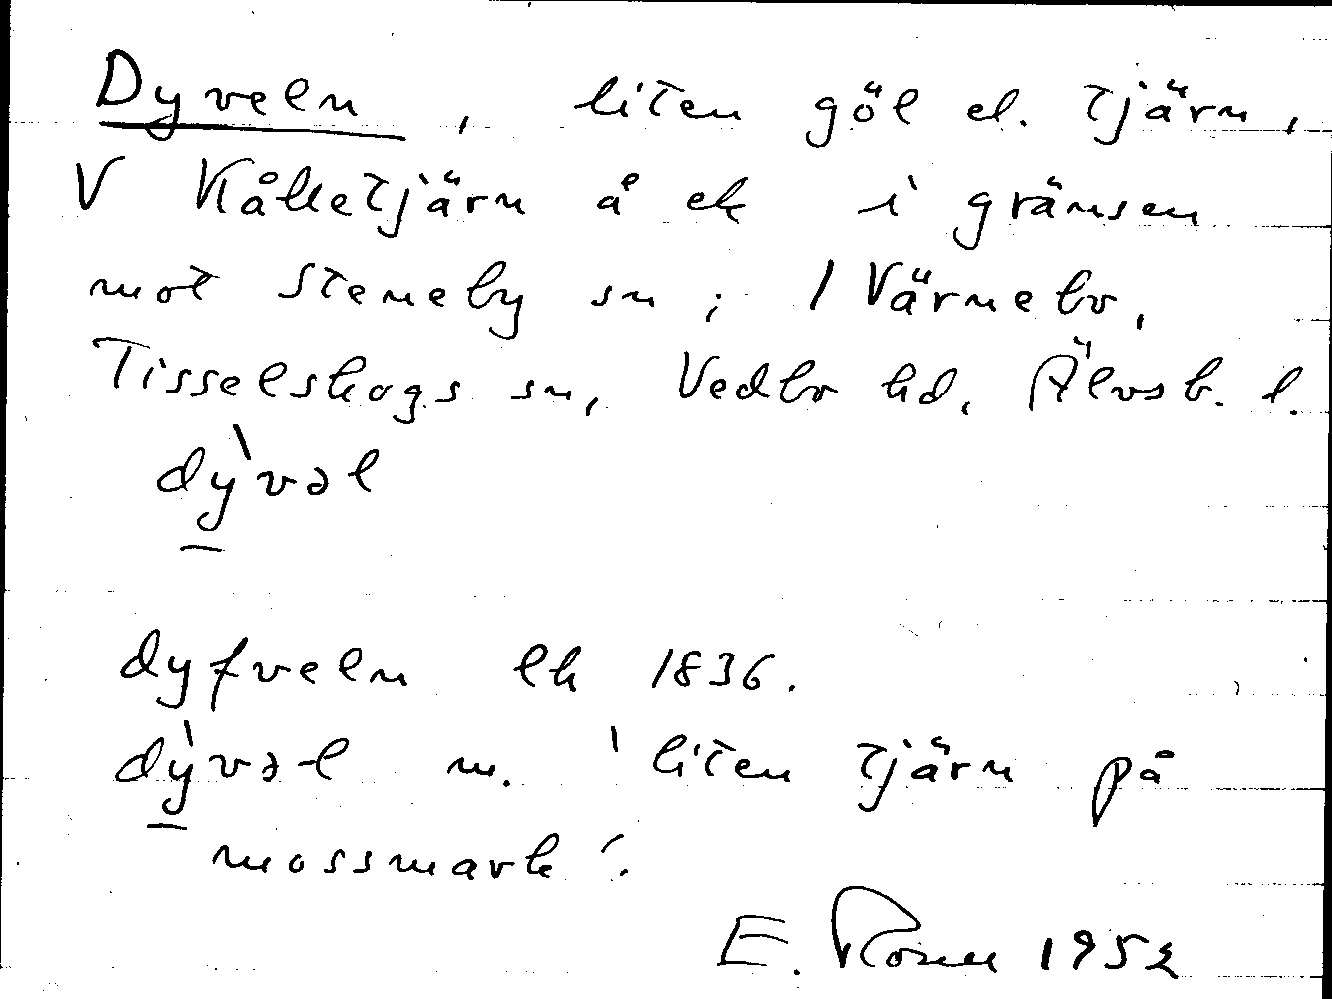 Dyveln, liten göl el. tjärn,
V Kålletjärn å ek i gränsen
mot Steneby sn; / Värnebo,
Tisselskogs sn, Vedbo hd, Älvsb. l.
dỳ̠vəl
dyfveln lh 1836.
dỳ̠vəl m. 'liten tjärn på
mossmark'.
E. 1952